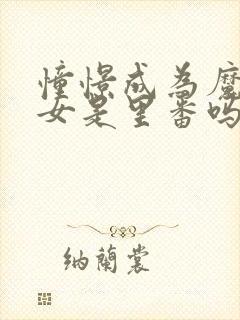 憧憬成為魔
女是里番吗
纳蘭裳